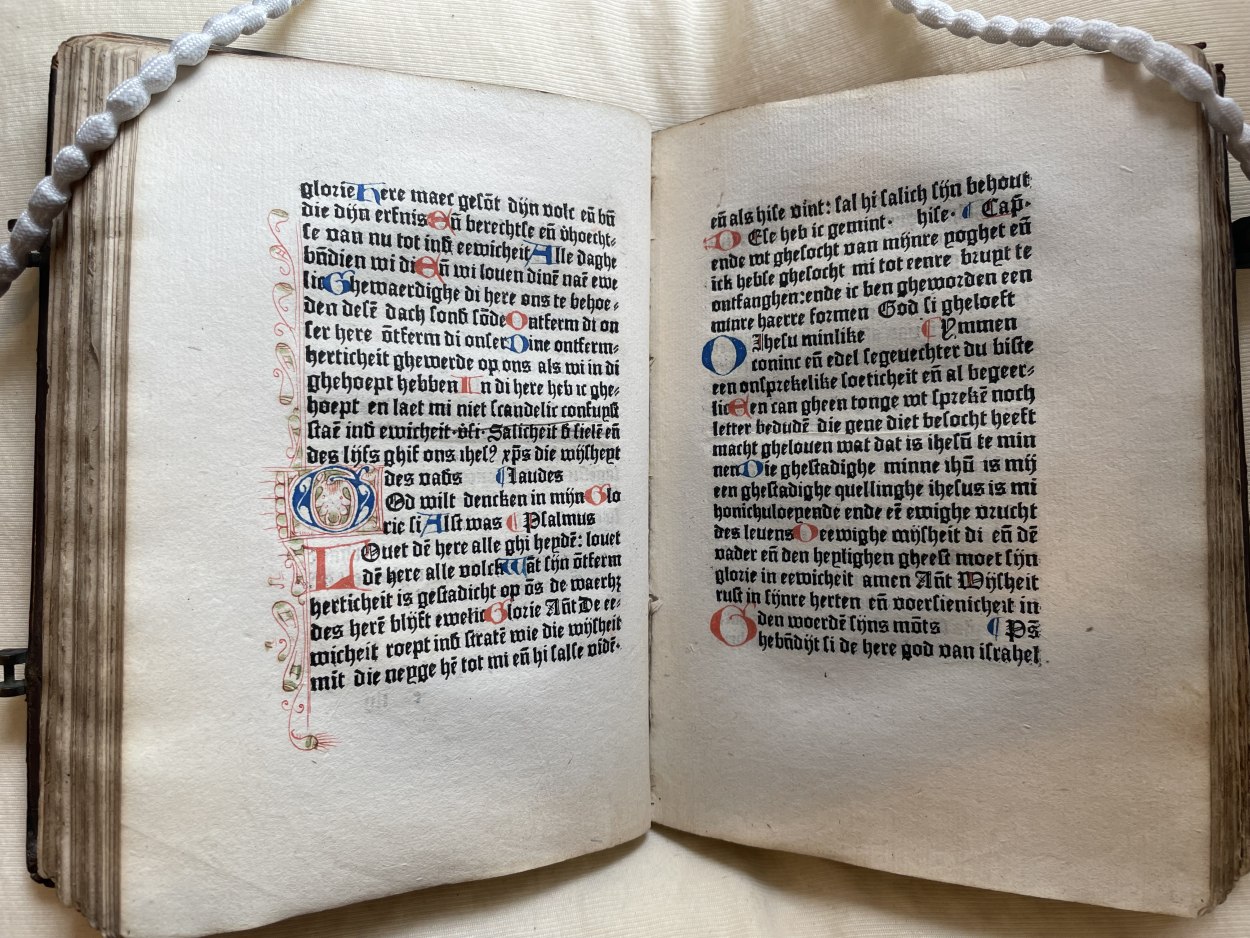 glorie Here maec gesōt dijn volc eñ bñ
die dijn erfnis Eñ berechtse eñ v̄hoecht⸗
se van nu tot inđ eewicheit Alle daghe
bñdien wi di Eñ wi louen dinē naē ewe
lic Ghewaerdighe di here ons te behoe⸗
den desē dach sond̄ sōde Ontferm di on
ser here ōtferm di onser Dine ontferm⸗
herticheit ghewerde op ons als wi in di
ghehoept hebben In di here heb ic ghe⸗
hoept en laet mi niet scandelic confuyst
staē inđ ewicheit· v̄si· Salicheit đ sielē eñ
des lijfs ghif ons ihesꝰ xp̄s die wijsheyt
des vad̄s ¶ laudes
God wilt dencken in mijn Glo
rie si Alst was ¶ Psalmus
LOuet dē here alle ghi heydē: louet
dē here alle volck Wāt sijn ōtferm
herticheit is gestadicht op ōs de waerhꝫ
des herē blijft ewelic Glorie Añt De ee⸗
wicheit roept inđ stratē wie die wijsheit
mīt die neyge hē tot mi eñ hi salse vidē·
eñ als hise vint: sal hi salich sijn behout
hise· ¶ Cap̄·
DEse heb ic gemint·
ende wt ghesocht van mijnre yoghet eñ
ick hebse ghesocht mi tot eenre bruyt te
ontfanghen: ende ic ben gheworden een
minre haerre formen God si gheloeft
¶ Ymmen
O Ihesu minlike
coninc eñ edel segeuechter du biste
een onsprekelike soeticheit eñ al begeer⸗
lic Een can gheen tonge wt sprekē noch
letter bedudē die gene diet besocht heeft
macht ghelouen wat dat is ihesū te min
nen Die ghestadighe minne ihū is mij
een ghestadighe quellinghe ihesus is mi
honichuloeyende ende eē ewighe vrucht
des leuens Deewighe wijsheit di eñ dē
vader eñ den heylighen gheest moet sijn
glorie in eewicheit amen Añt Wijsheit
rust in sijnre herten eñ voersienicheit in
den woerdē sijns mōts ¶ Ps̄
Ghebñdijt si de here god van israhel